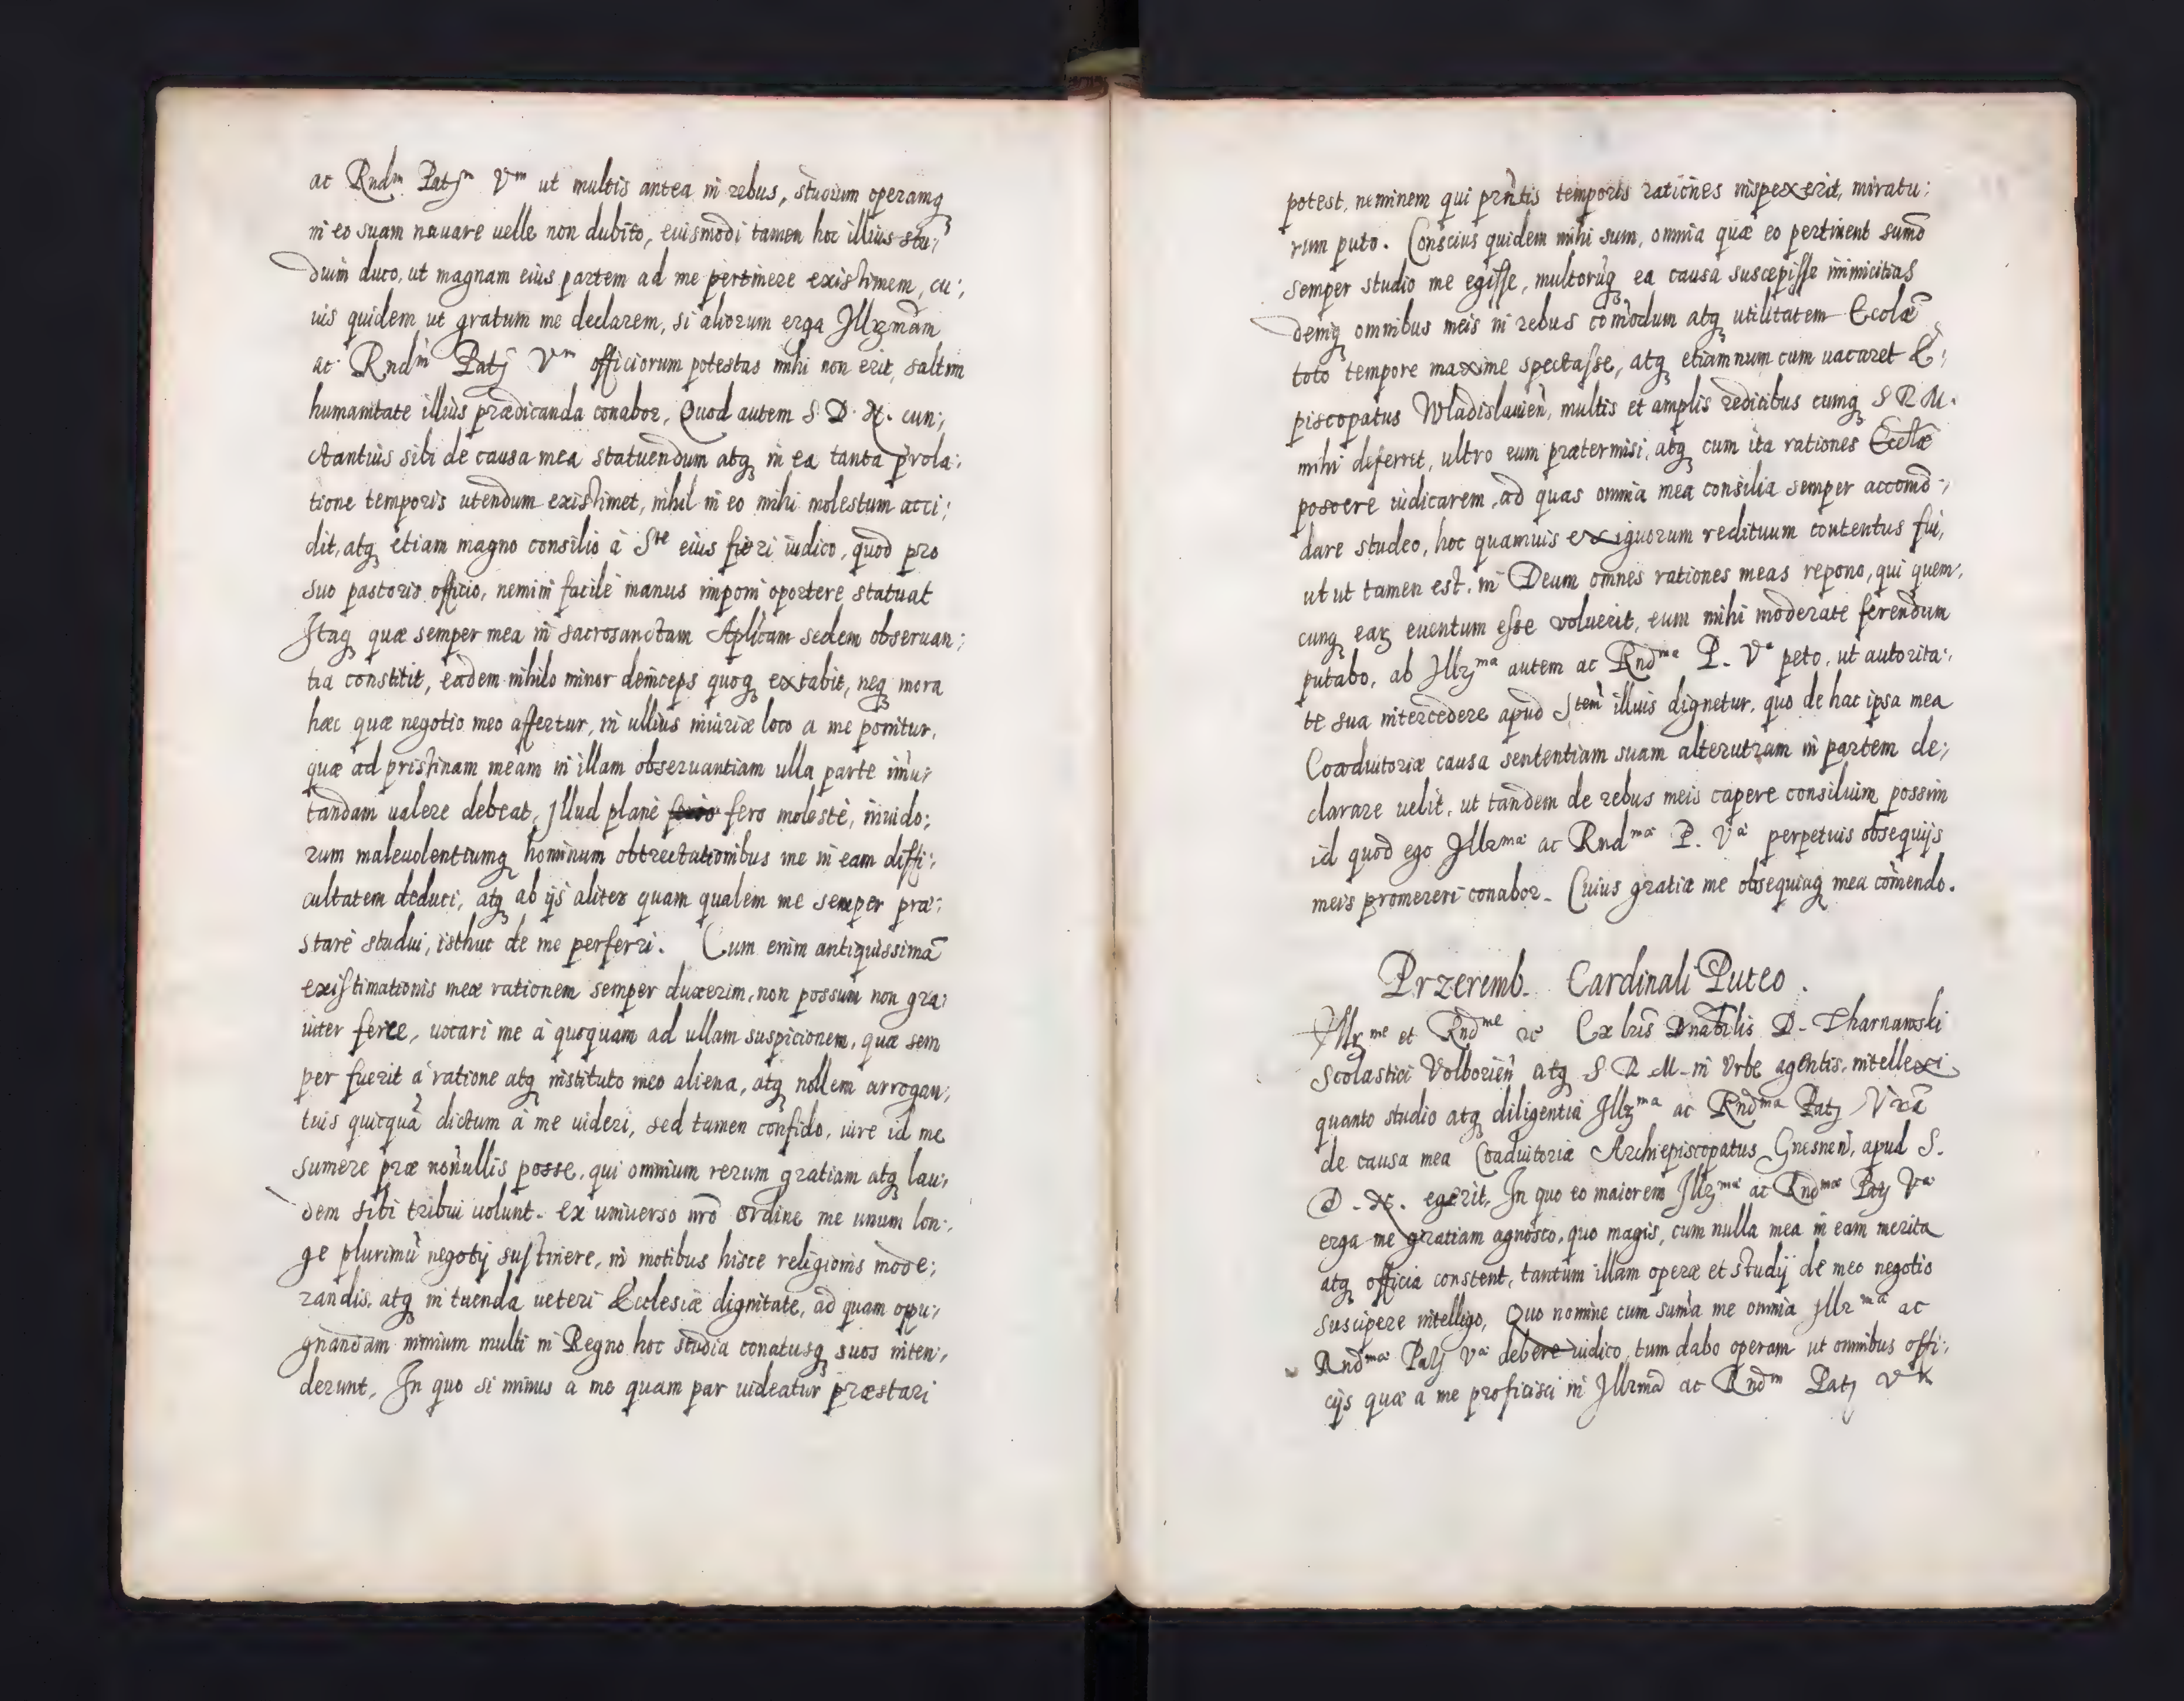 ac Rndm Patjm Vm ut multis antea in rebus, studium operamq;
in eo suam nauare uelle non dubito, euismodi tamen hoc illius stu;
dium duco, ut magnam eius partem ad me pertinere existimem, cu;
ius quidem ut gratum me declarem, si aliorum erga Jllrzmam
ac Rndm Patj Vm officiorum potestas mihi non erit, saltim
humanitate illius prædicanda conabor, Quod autem S. D. N. cun;
ctantius sibi de causa mea statuendum atq; in ea tanta prola;
tione temporis utendum existimet, nihil in eo mihi molestum acci;
dit, atq; etiam magno consilio à Ste eius fieri iudico, quod pro
suo pastoris officio, nemini facilè manus imponi oportere statuat
Jtaq; quæ semper mea in sacrosanctam Aplicam sedem obseruan;
tia constitit, eadem nihilo minor deinceps quoq; extabit, neq; mora
hæc quæ negotio meo affertur, in ullius iniuriæ loco a me ponitur,
quæ ad pristinam meam in illam obseruantiam ulla parte imu;
tandam ualere debeat, Jllud planè fero molestè, inuido;
rum maleuolentiumq; hominum obtrectationibus me in eam diffi;
cultatem deduci, atq; ab ijs aliter quam qualem me semper præ;
stare studui, isthuc de me perferri. Cum enim antiquissimā
existimationis meæ rationem semper duxerim, non possum non gra;
uiter ferre, uocari me à quoquam ad ullam suspicionem, quæ sem
per fuerit à ratione atq; instituto meo aliena, atq; nollem arrogan;
tius quicquā dictum à me uideri, sed tamen confido, iure id me
sumere præ nonullis posse, qui omnium rerum gratiam atq; lau;
dem sibi tribui uolunt. ex uniuerso nrō ordine me unum lon;
ge plurimū negotij sustinere, in motibus hisce religionis mode;
randis, atq; in tuenda ueteri Ecclesiæ dignitate, ad quam oppu;
gnandam nimium multi in Regno hoc studia conatusq; suos inten;
derunt, In quo si minus a me quam par uideatur præstari
potest, neminem qui prntis temporis rationes inspexerit, miratu;
rum puto. Conscius quidem mihi sum, omnia quæ eo pertinent sumō
semper studio me egisse, multorūq; ea causa suscepisse inimicitias
deniq; omnibus meis in rebus comodum atq; utilitatem Ecclæ
toto tempore maxime spectasse, atq; etiamnum cum uacaret E;
piscopatus Wladislauien, multis et amplis reditibus cumq; S R M.
mihi deferret, ultro eum prætermisi, atq; cum ita rationes Ecclæ
poscere iudicarem, ad quas omnia mea consilia semper accomō;
dare studeo, hoc quamuis exiguorum redituum contentus fui,
ut ut tamen est, in Deum omnes rationes meas repono, qui quem;
cunq; earz euentum esse voluerit, eum mihi moderate ferendum
putabo, ab Jllrzma autem ac Rndma P. Va peto, ut autorita;
te sua intercedere apud Stem illius dignetur, quo de hac ipsa mea
Coadiutoriæ causa sententiam suam alterutram in partem de;
clarare uelit, ut tandem de rebus meis capere consilium possim
id quod ego Jllrma ac Rndma P. Va perpetuis obsequijs
meis promereri conabor. Cuius gratiæ me obsequiaq; mea comendo.
Przeremb. Cardinali Puteo.
Jllrme et Rndme &c Ex lris Dnabilis D. Tharnawski
Scolastici Volborien atq; S R M. in Vrbe agentis, intellexi
quanto studio atq; diligentia Jllrzma ac Rndma Patj Vrā
de causa mea Coadiutoriæ Archiepiscopatus Gnesnen, apud S.
D. N. egerit, In quo eo maiorem Jllrzmæ ac Rndmæ Patj Væ
erga me gratiam agnosco, quo magis, cum nulla mea in eam merita
atq; officia constent, tantum illam operæ et studij de meo negotio
suscipere intelligo, Quo nomine cum suma me omnia Jllrma ac
Rndmæ Patj Væ debere iudico, tum dabo operam ut omnibus offi;
cijs quæ a me proficisci in Jllrmā ac Rndm Patj Vm